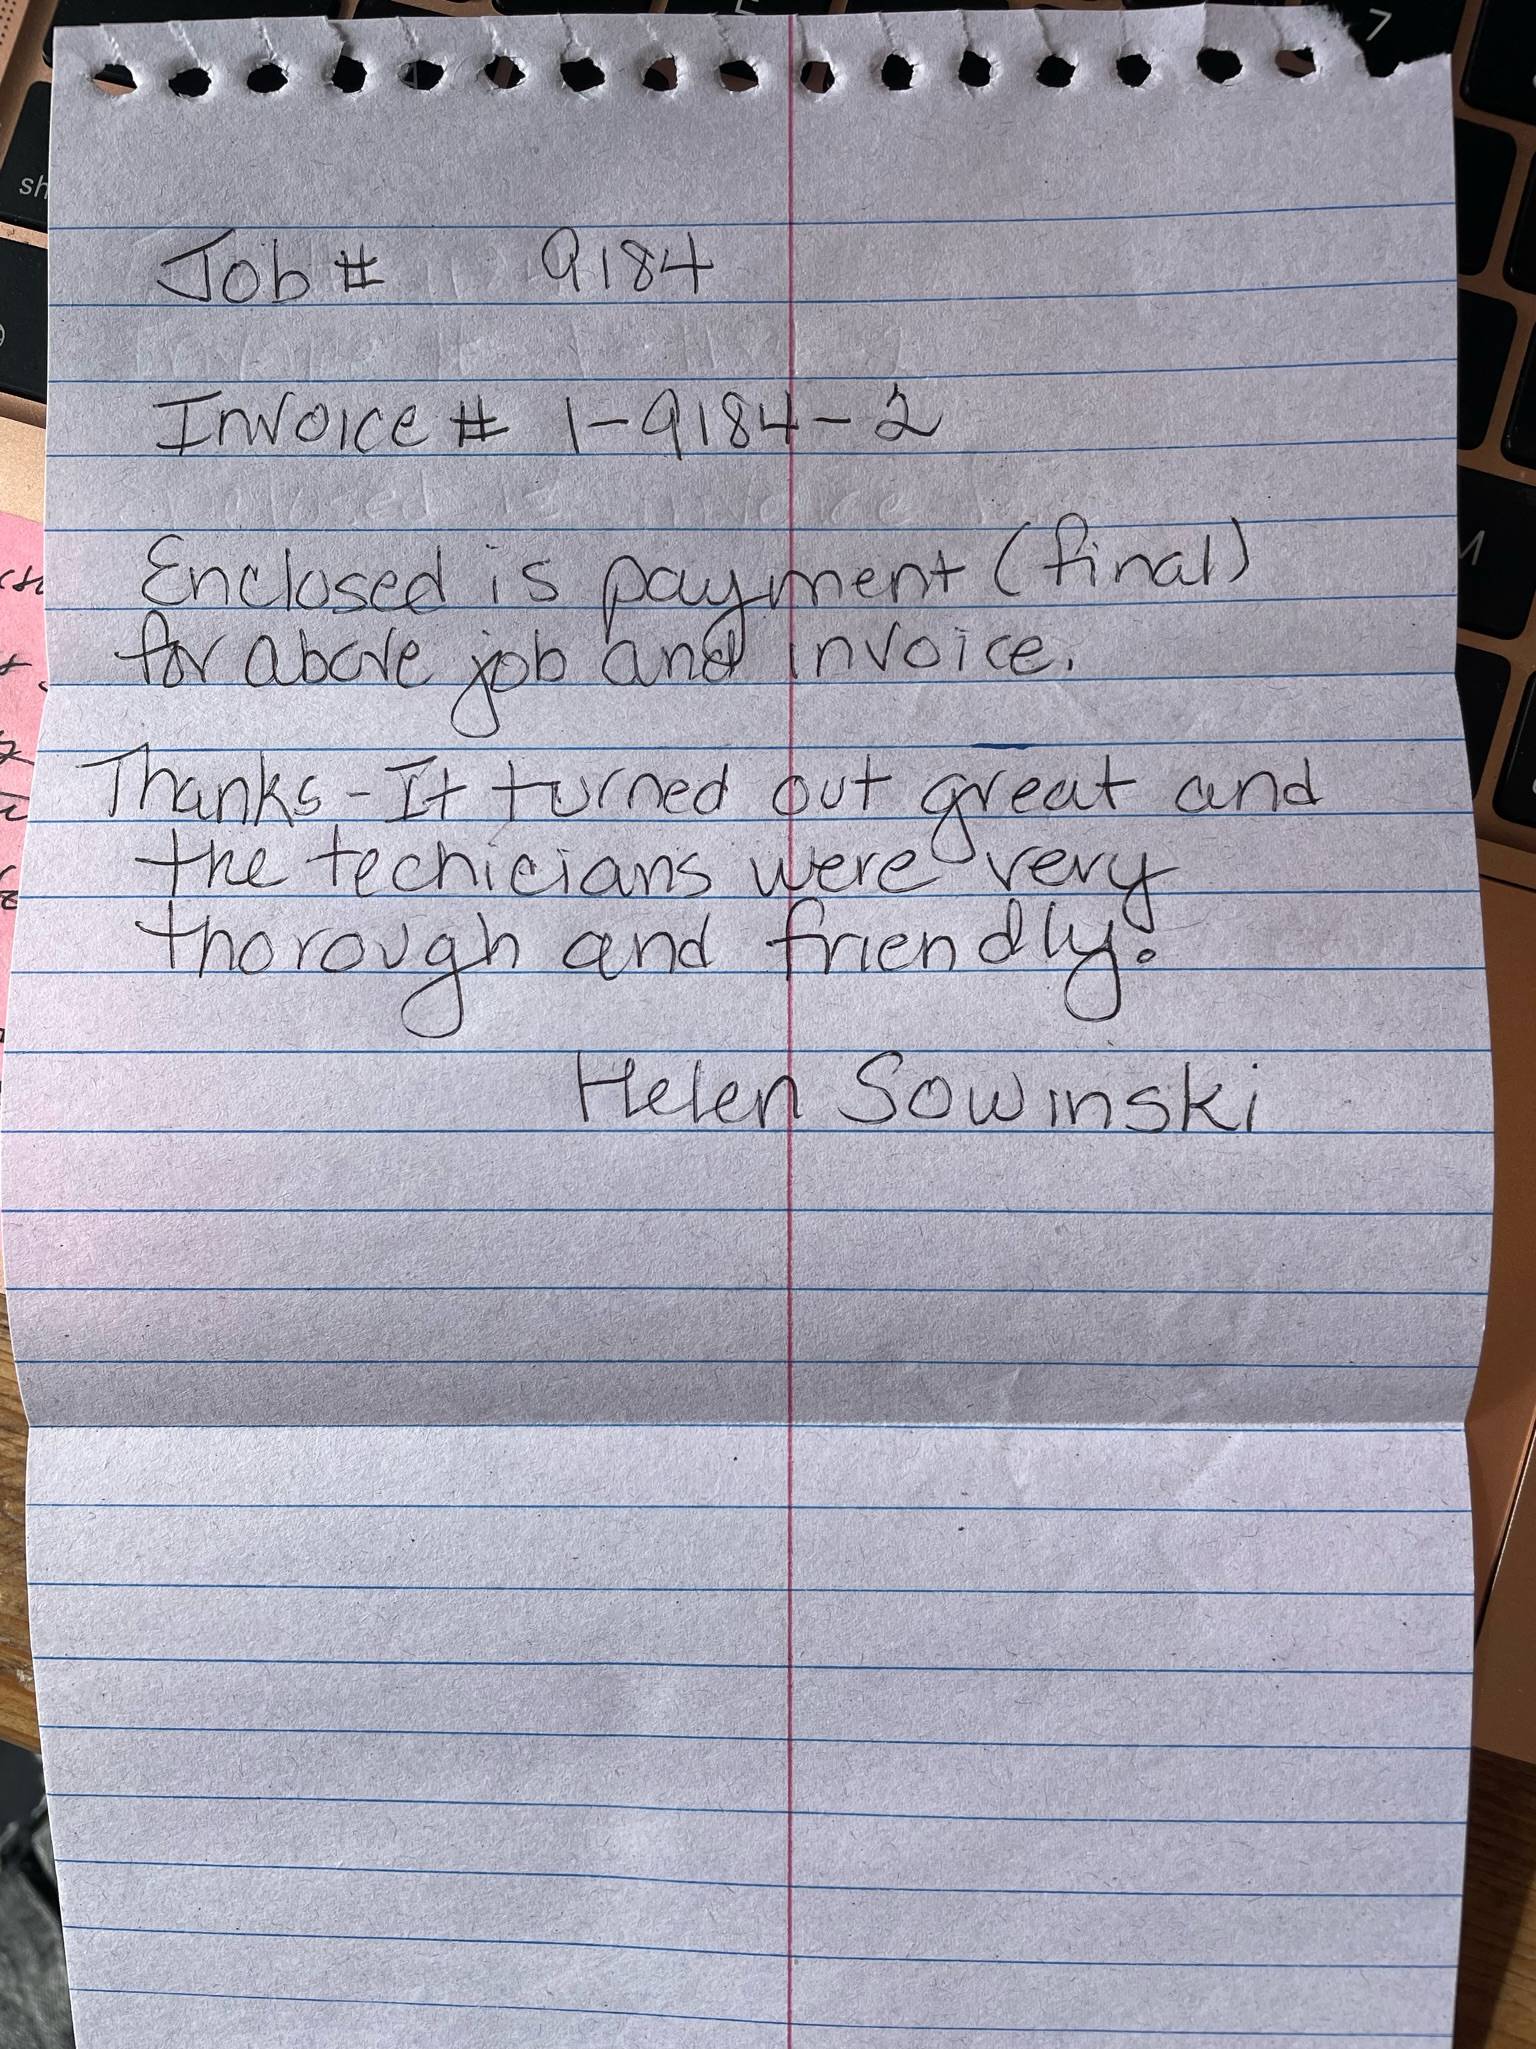 Job # 9184
Invoice # 1-9184-2
Enclosed is payment (final)
for above job and invoice.
Thanks - It turned out great and
the techicians were very
thorough and friendly.
Helen Sowinski
7
sh
M